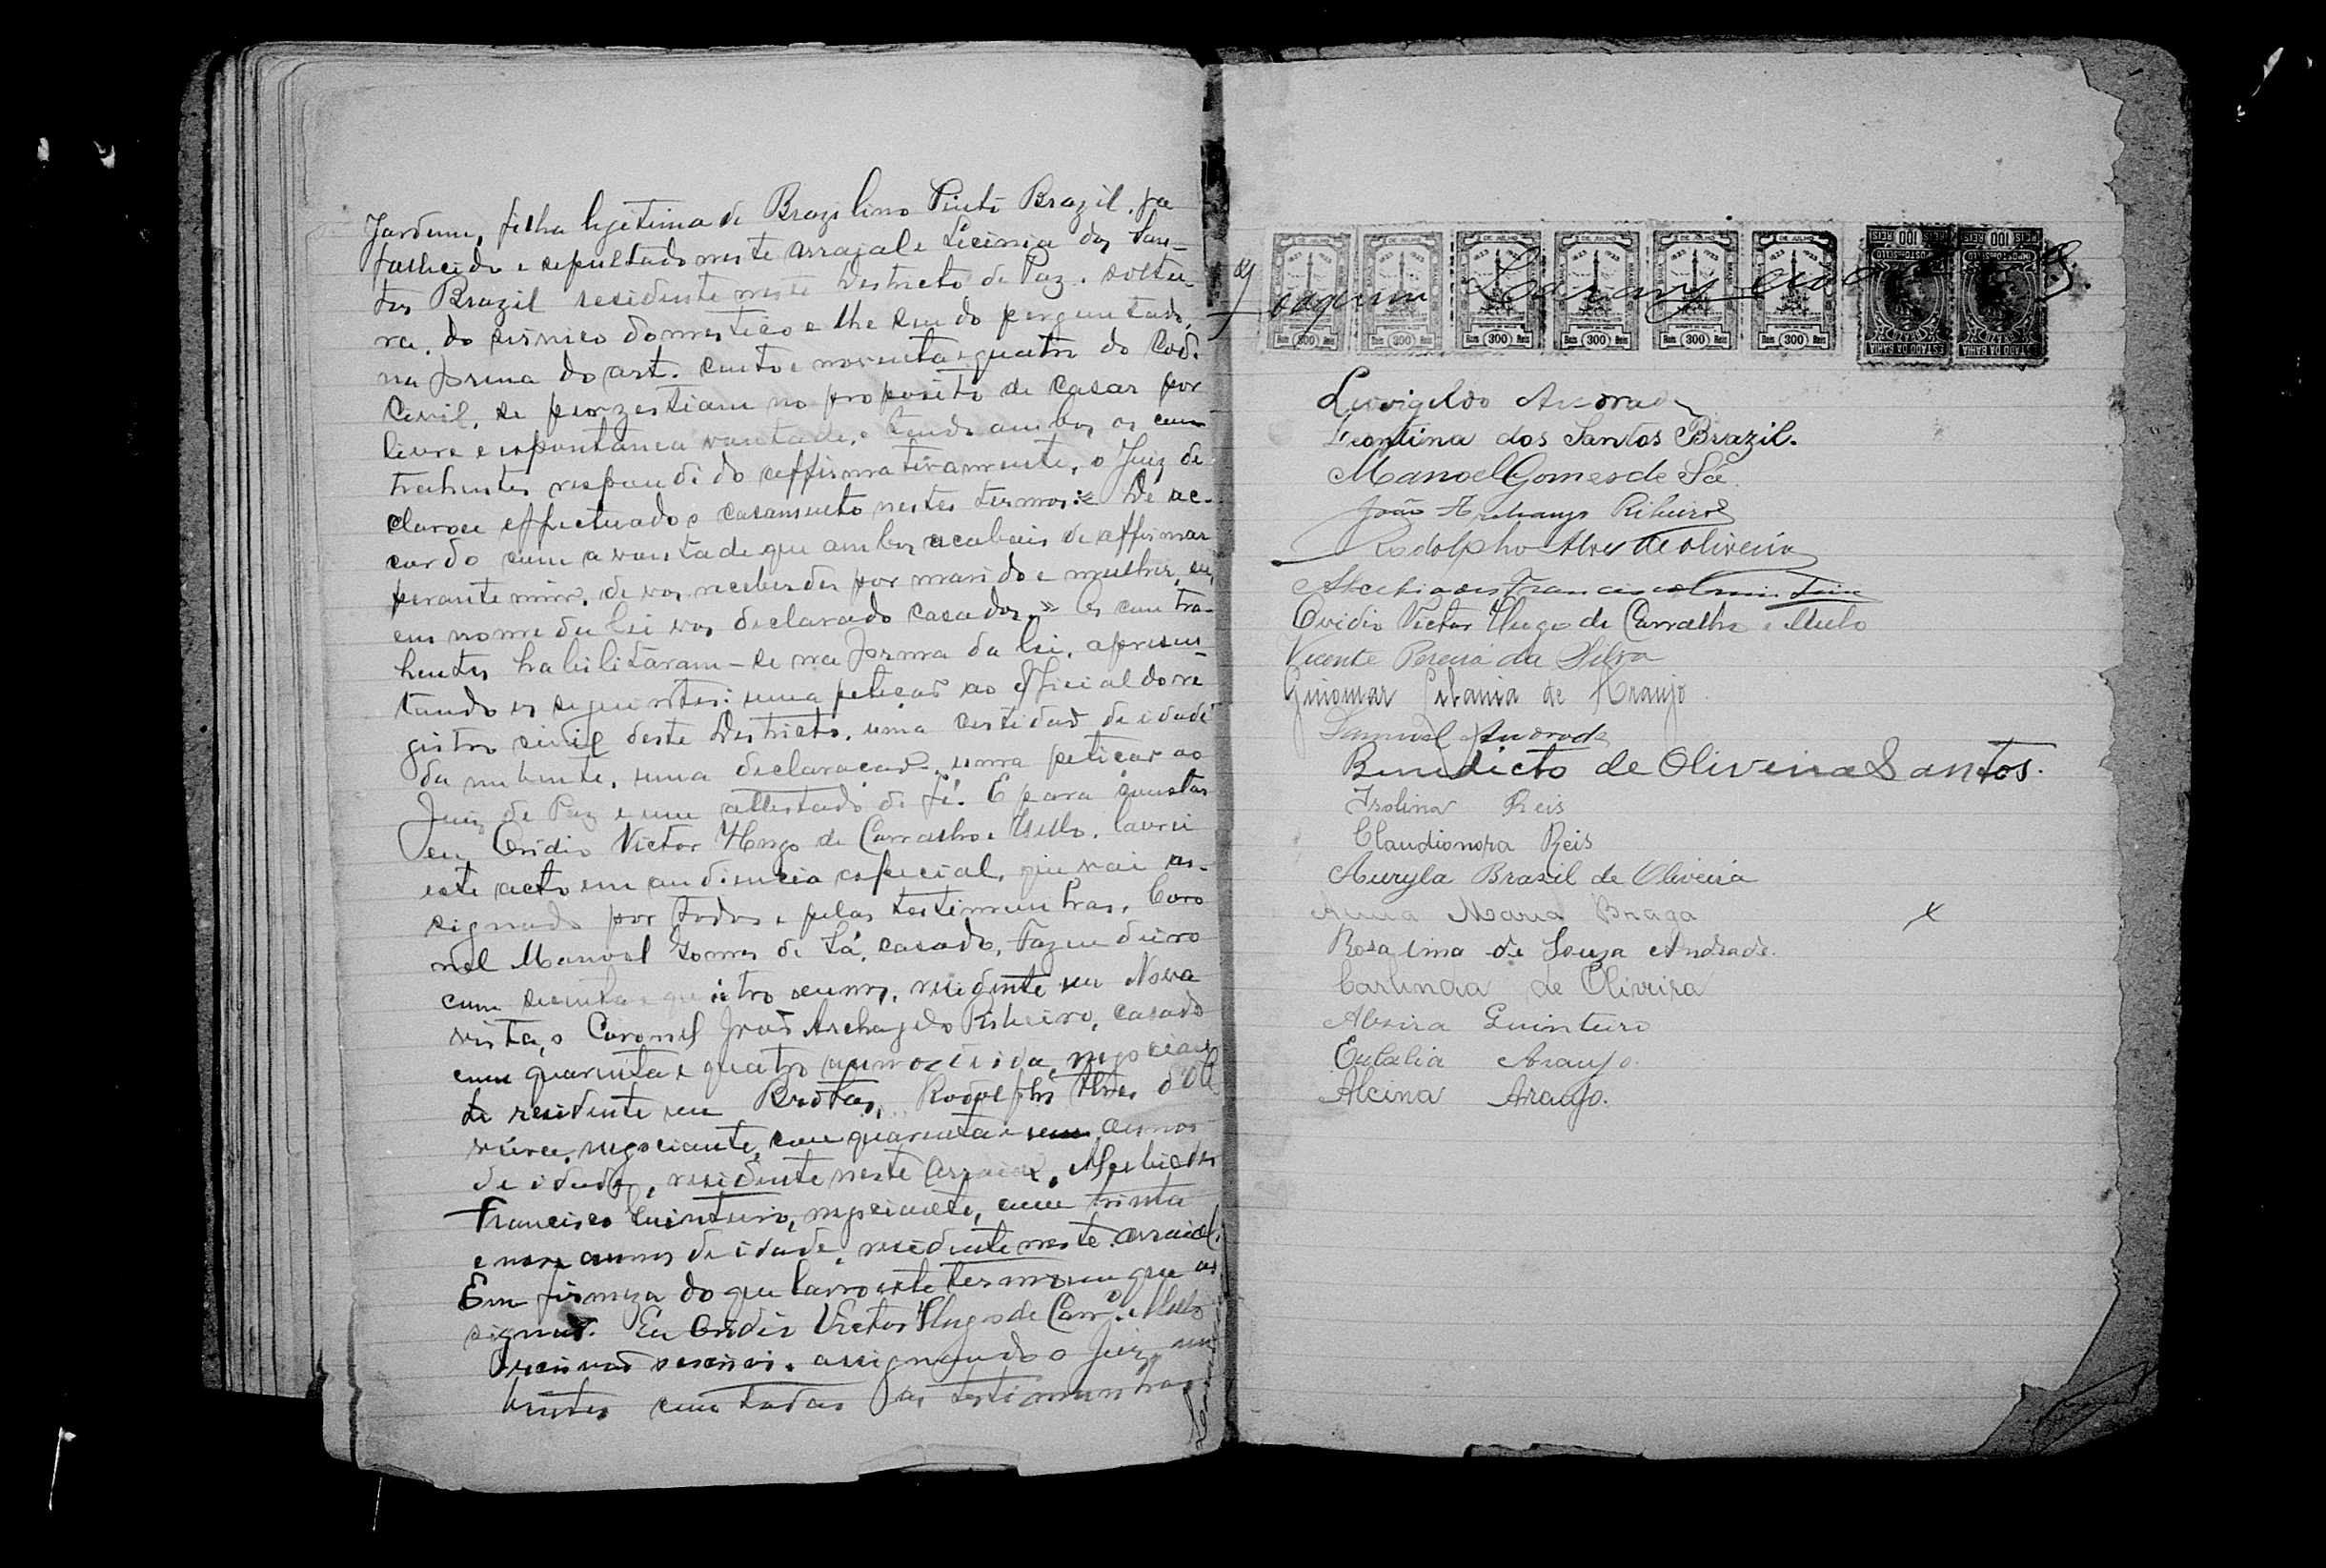 Jardim, filha legitima de Brazilino Pinto Brazil, ja
fallecido e sepultado neste arraial e Licinia dos San-
tos Brazil residente neste Destricto de Paz. soltei-
ra, do serviço domestico e lhe sendo perguntado,
na forma do art. cento e noventa e quatro do Cod.
Civil, se perzestiam no proposito de casar por
livre e espontanea vontade, e tendo ambos os con
trahentes respondido affirmativamente, o Juiz de
clarou effectuado o casamento nestes termos: « De ac-
cordo com a vontade que ambos acabais de affirmar
perante mim, de vos receberdes por marido e mulher, eu,
em nome da lei vos declarado casados. » Os contra-
hentes habilitaram-se na forma da lei, apresen-
tando os seguintes: uma petição ao official do re
gistro civil deste Destricto, uma certidão de idade
da nubente, uma declaração, uma petição ao
Juiz de Paz e um attestado de fé. E para constar
eu, Ovidio Victor Hugo de Carvalho e Mello, lavrei
este acto em audiencia especial, que vai as-
signado por todos e pelas testimunhas, Coro
nel Manoel Gomes de Sá, casado, Fazendeiro
com sessenta e quatro annos, residente em Nova
vista, o Coronel João Archanjelo Ribeiro, casado
com quarenta e quatro annos de idade, negocian
te residente em Brotas, Rodolpho Alves d'Oli
veira, negociante, com quarenta e um annos
de idade, residente neste arraial, Alcibiades
Francisco Quinteiro, negociante, com trinta
e nove annos de idade, residente neste arraial.
Em firmeza do que lavro este termo em que as
signão. Eu Ovidio Victor Hugo de Carvo. e Mello
Escrivão escrevi. assignando o Juiz, nu
bentes com todas as testimunhas
Joaquim
I DE JULHO I DE JULHO I DE JULHO I DE JULHO I DE JULHO I DE JULHO
Reis 300 Reis Reis 300 Reis Reis 300 Reis Reis 300 Reis Reis 300 Reis Reis 300 Reis
REIS 100 REIS 100
IMPOSTO DO SELLO IMPOSTO DO SELLO
ESTADO DA BAHIA ESTADO DA BAHIA
Leovigildo Andrade
Leontina dos Santos Brazil.
Manoel Gomes de Sá.
João Archanjo Ribeiro
Rodolpho Alves de Oliveira
Alcebiades Francisco Quinteiro
Ovidio Victor Hugo de Carvalho e Mello
Vicente Pereira da Silva
Guiomar de Araujo
Samuel Andrade
Benedicto de Oliveira Santos.
Irolina Reis
Claudionora Reis
Auryla Brasil de Oliveira
Anna Maria Braga x
Rosalina de Souza Andrade.
Carlinda de Oliveira
Alzira Quinteiro
Eulalia Araujo.
Alcina Araujo.